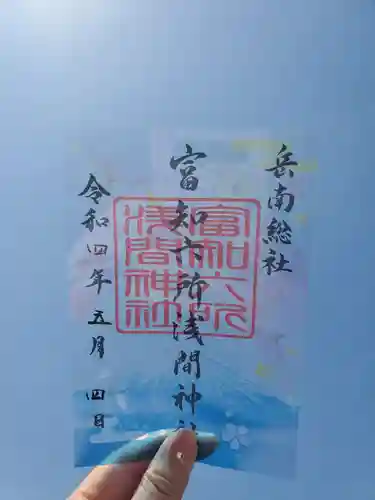 岳南総社
富知六所浅間神社
富知六所
浅間神社
令和四年五月四日